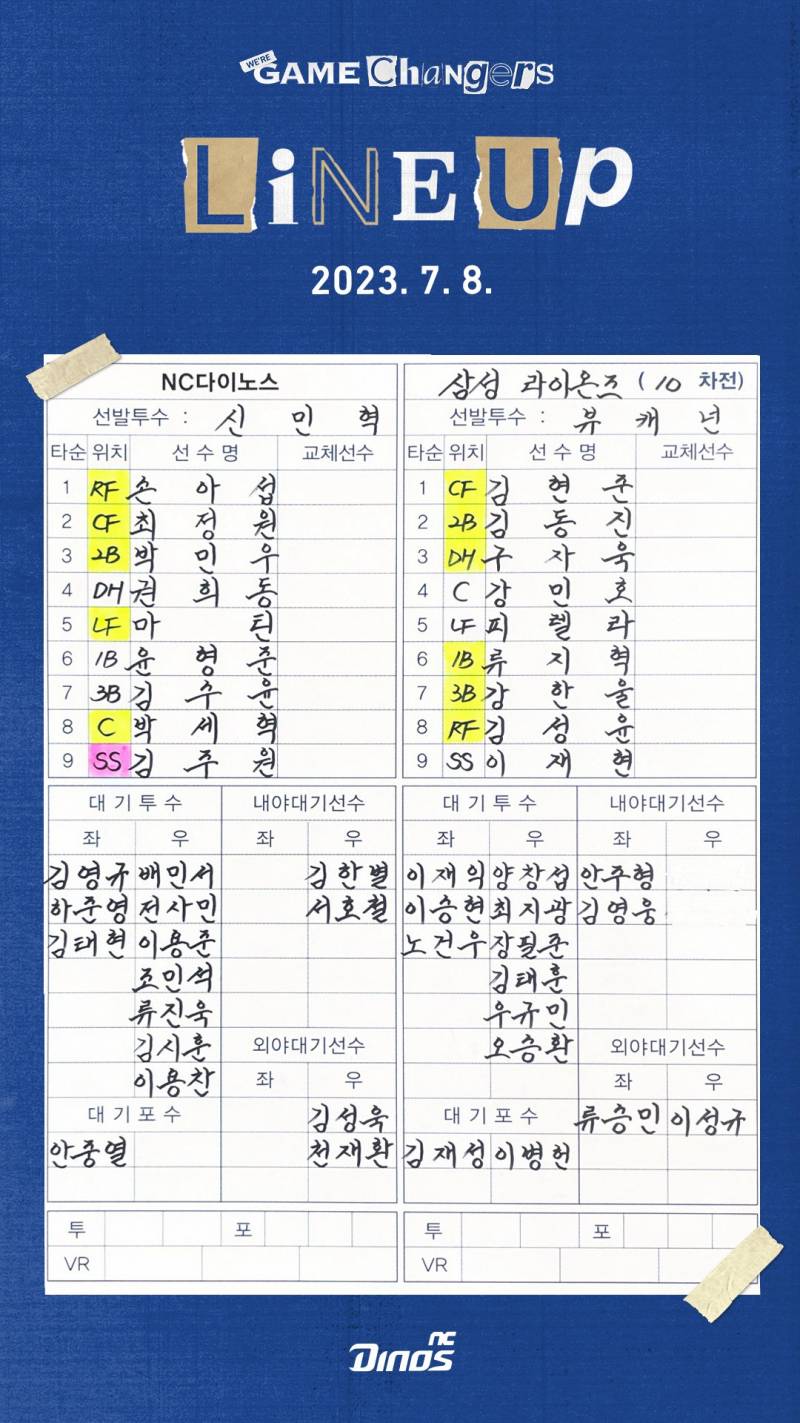 WE'RE GAME CHaNgers
LiNEUp
2023. 7. 8.
NC다이노스
선발투수 : 신 민 혁
타순 위치 선 수 명 교체선수
1 RF 손 아 섭
2 CF 최 정 원
3 2B 박 민 우
4 DH 권 희 동
5 LF 마 틴
6 1B 윤 형 준
7 3B 김 수 윤
8 C 박 세 혁
9 SS 김 주 원
대 기 투 수 내야대기선수
좌 우 좌 우
김영규 배민서 김한별
하준영 전사민 서호철
김태현 이용준
조민석
류진욱
김시훈 외야대기선수
이용찬 좌 우
대 기 포 수 김성욱
안중열 천재환
투 포
VR
삼성 라이온즈 ( 10 차전)
선발투수 : 뷰 캐 넌
타순 위치 선 수 명 교체선수
1 CF 김 현 준
2 2B 김 동 진
3 DH 구 자 욱
4 C 강 민 호
5 LF 피 렐 라
6 1B 류 지 혁
7 3B 강 한 울
8 RF 김 성 윤
9 SS 이 재 현
대 기 투 수 내야대기선수
좌 우 좌 우
이재익 양창섭 안주형
이승현 최지광 김영웅
노건우 장필준
김태훈
우규민
오승환 외야대기선수
좌 우
대 기 포 수 류승민 이성규
김재성 이병헌
투 포
VR
NC
DINOS